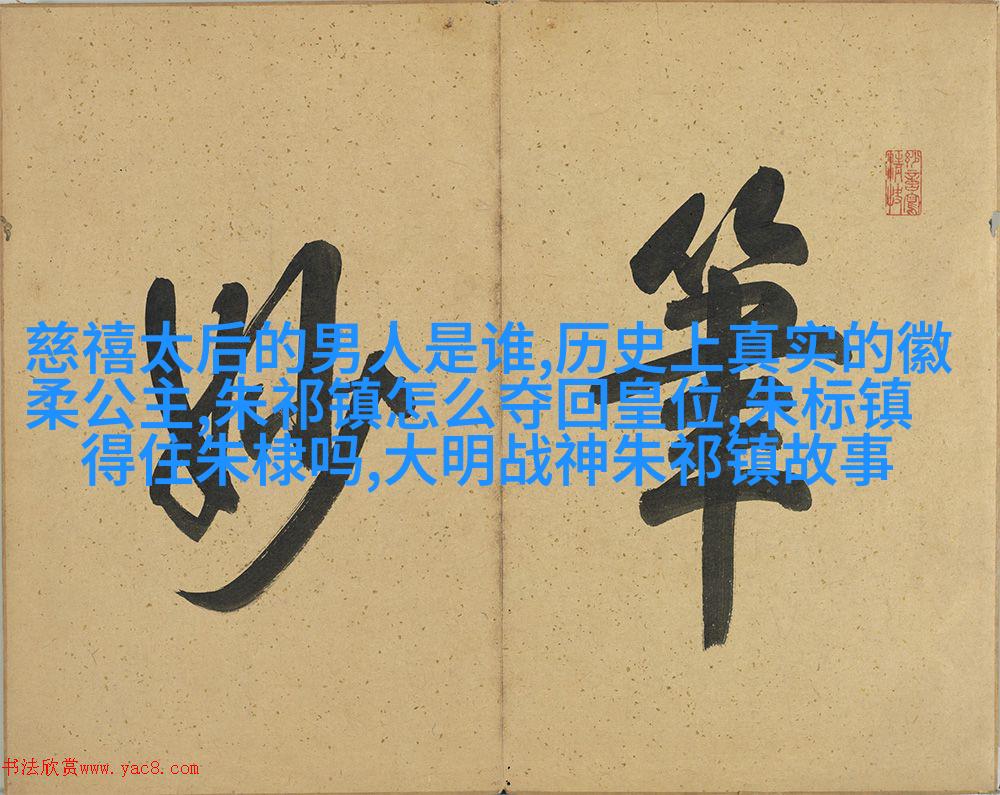 筆
妙
慈禧太后的男人是谁,历史上真实的徽
柔公主,朱祁镇怎么夺回皇位,朱标镇
得住朱棣吗,大明战神朱祁镇故事
书法欣赏www.yac8.com